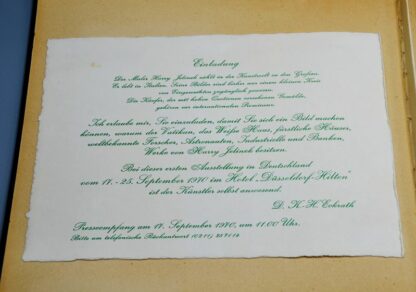 Einladung
Der Maler Harry Jelinek zählt in der Kunstwelt zu den Großen.
Er lebt in Italien. Seine Bilder sind bisher nur einem kleinen Kreis
von Eingeweihten zugänglich gewesen.
Die Käufer, der mit hohen Gemälde,
gehören zur internationalen Prominenz.
Ich erlaube mir, Sie einzuladen, damit Sie sich ein Bild machen
können, warum der Vatikan, das Weiße Haus, fürstliche Häuser,
weltbekannte Forscher, Astronauten, Industrielle und Banken,
Werke von Harry Jelinek besitzen.
Bei dieser ersten Ausstellung in Deutschland
vom 17. - 25. September 1970 im Hotel „Düsseldorf-Hilton"
ist der Künstler selbst anwesend.
D. K.-H. Eckrath
Presseempfang am 17. September 1970, um 11.00 Uhr.
Bitte um telefonische Rückantwort